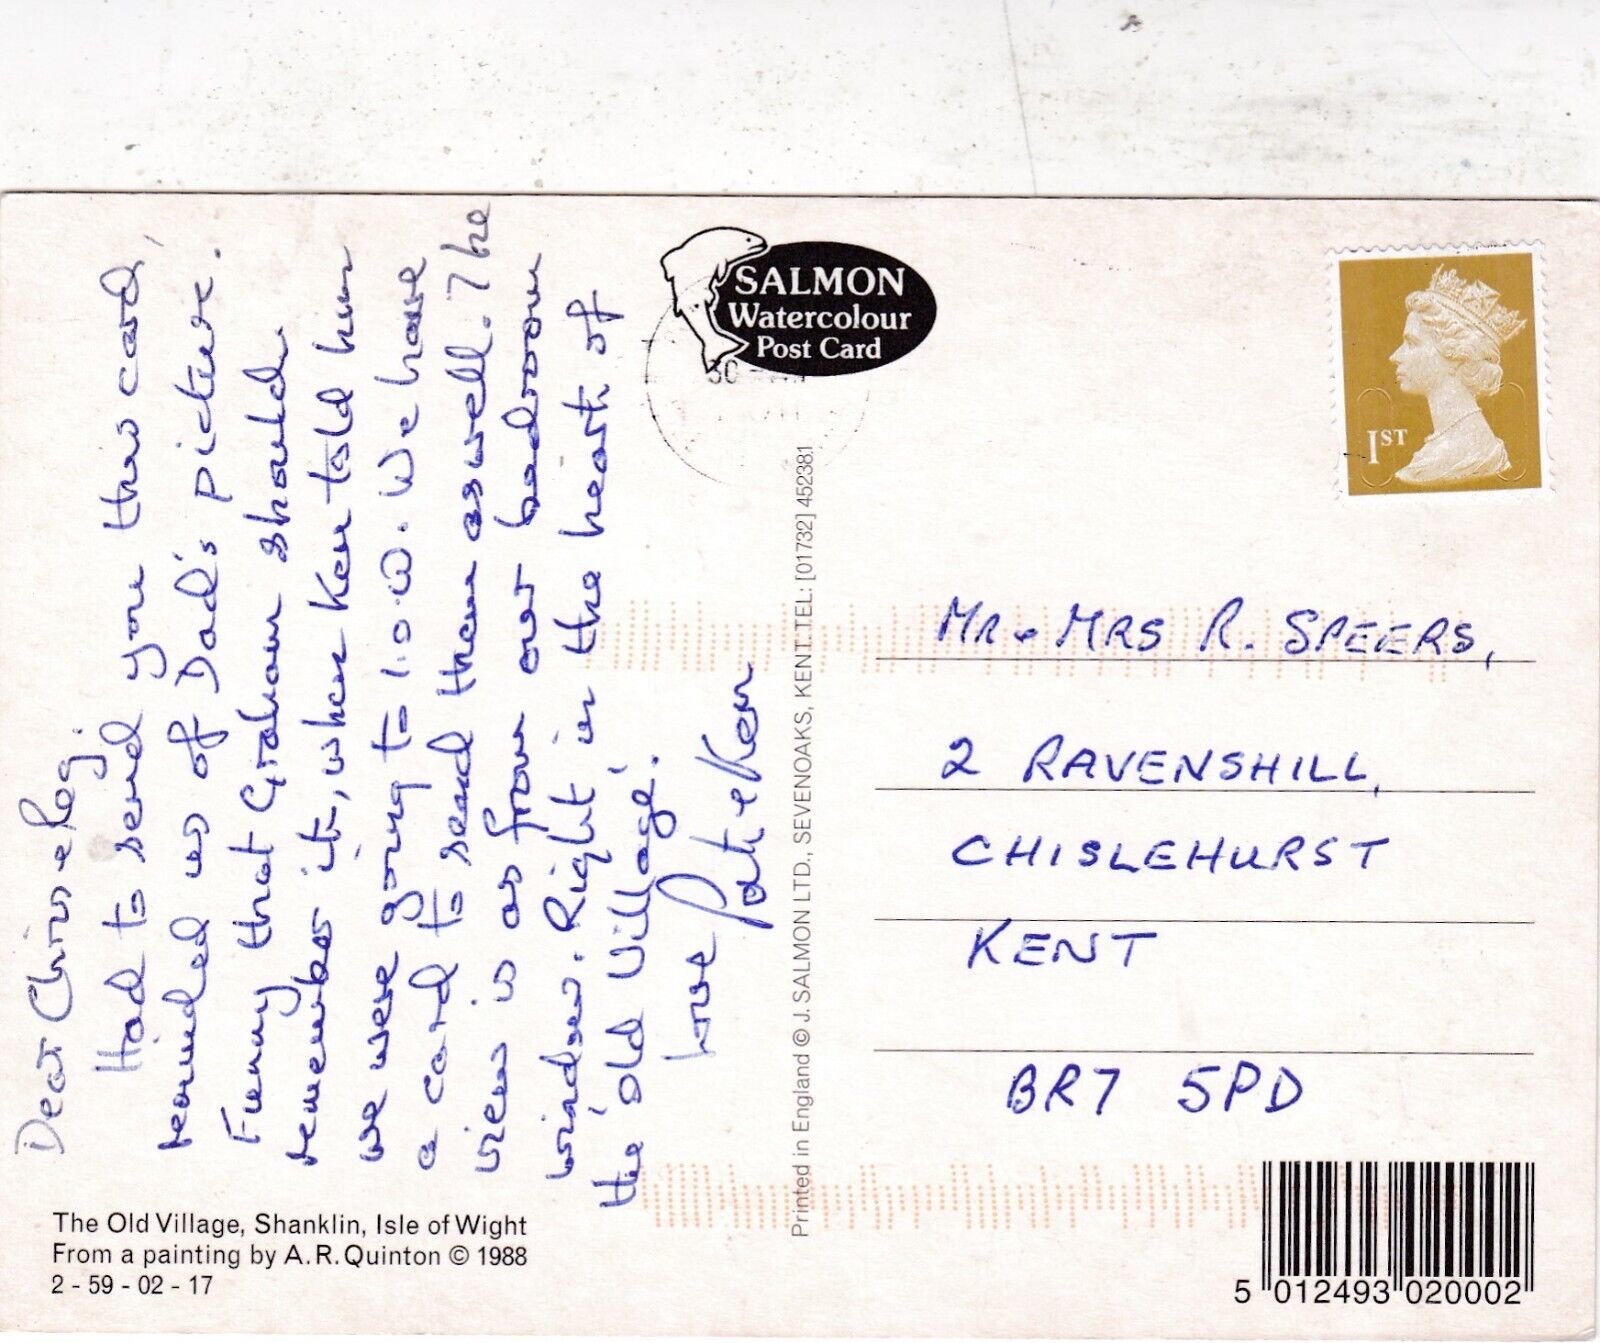 Dear Chris & Reg.
Had to send you this card,
reminded us of Dad's picture.
Funny that Graham should
remember it, when Ken told him
we were going to I.O.W. We have
a card to send them as well. The
view is as from our bedroom
window. Right in the heart of
the 'old Village'.
Love Pat & Ken
The Old Village, Shanklin, Isle of Wight
From a painting by A.R. Quinton © 1988
2 - 59 - 02 - 17
SALMON
Watercolour
Post Card
30
Printed in England © J. SALMON LTD., SEVENOAKS, KENT. TEL: [01732] 452381
1ST
MR & MRS R. SPEERS,
2 RAVENSHILL,
CHISLEHURST
KENT
BR7 5PD
5 012493 020002